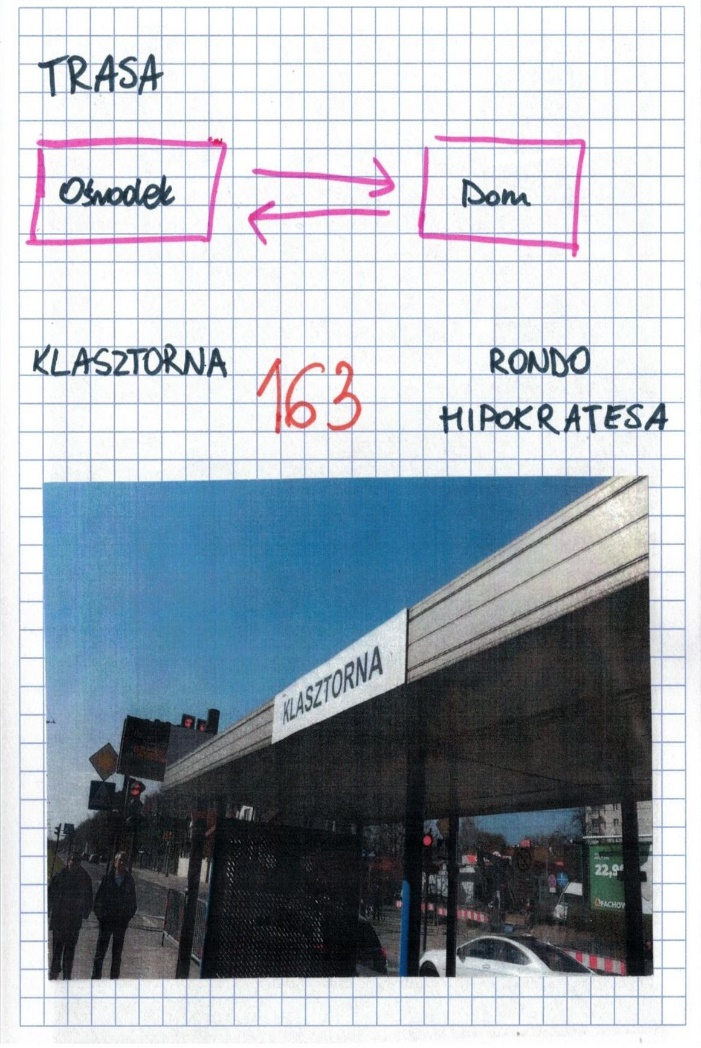 TRASA
Ośrodek
Dom
KLASZTORNA
163
RONDO
HIPOKRATESA
KLASZTORNA
22,9
FACHOW